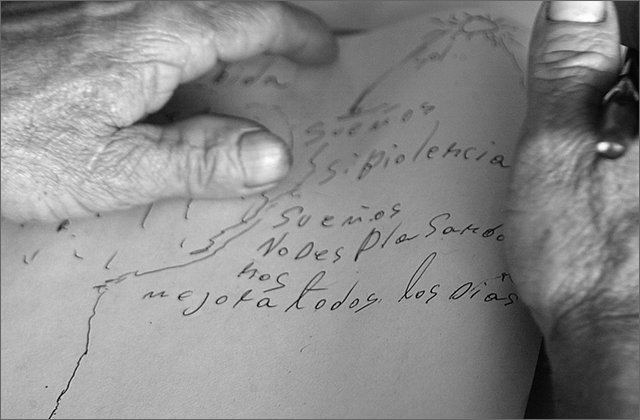 sol
sueños
sipiolencia
sueños
No Des Pla Sando
nos
mejora todos los Dias